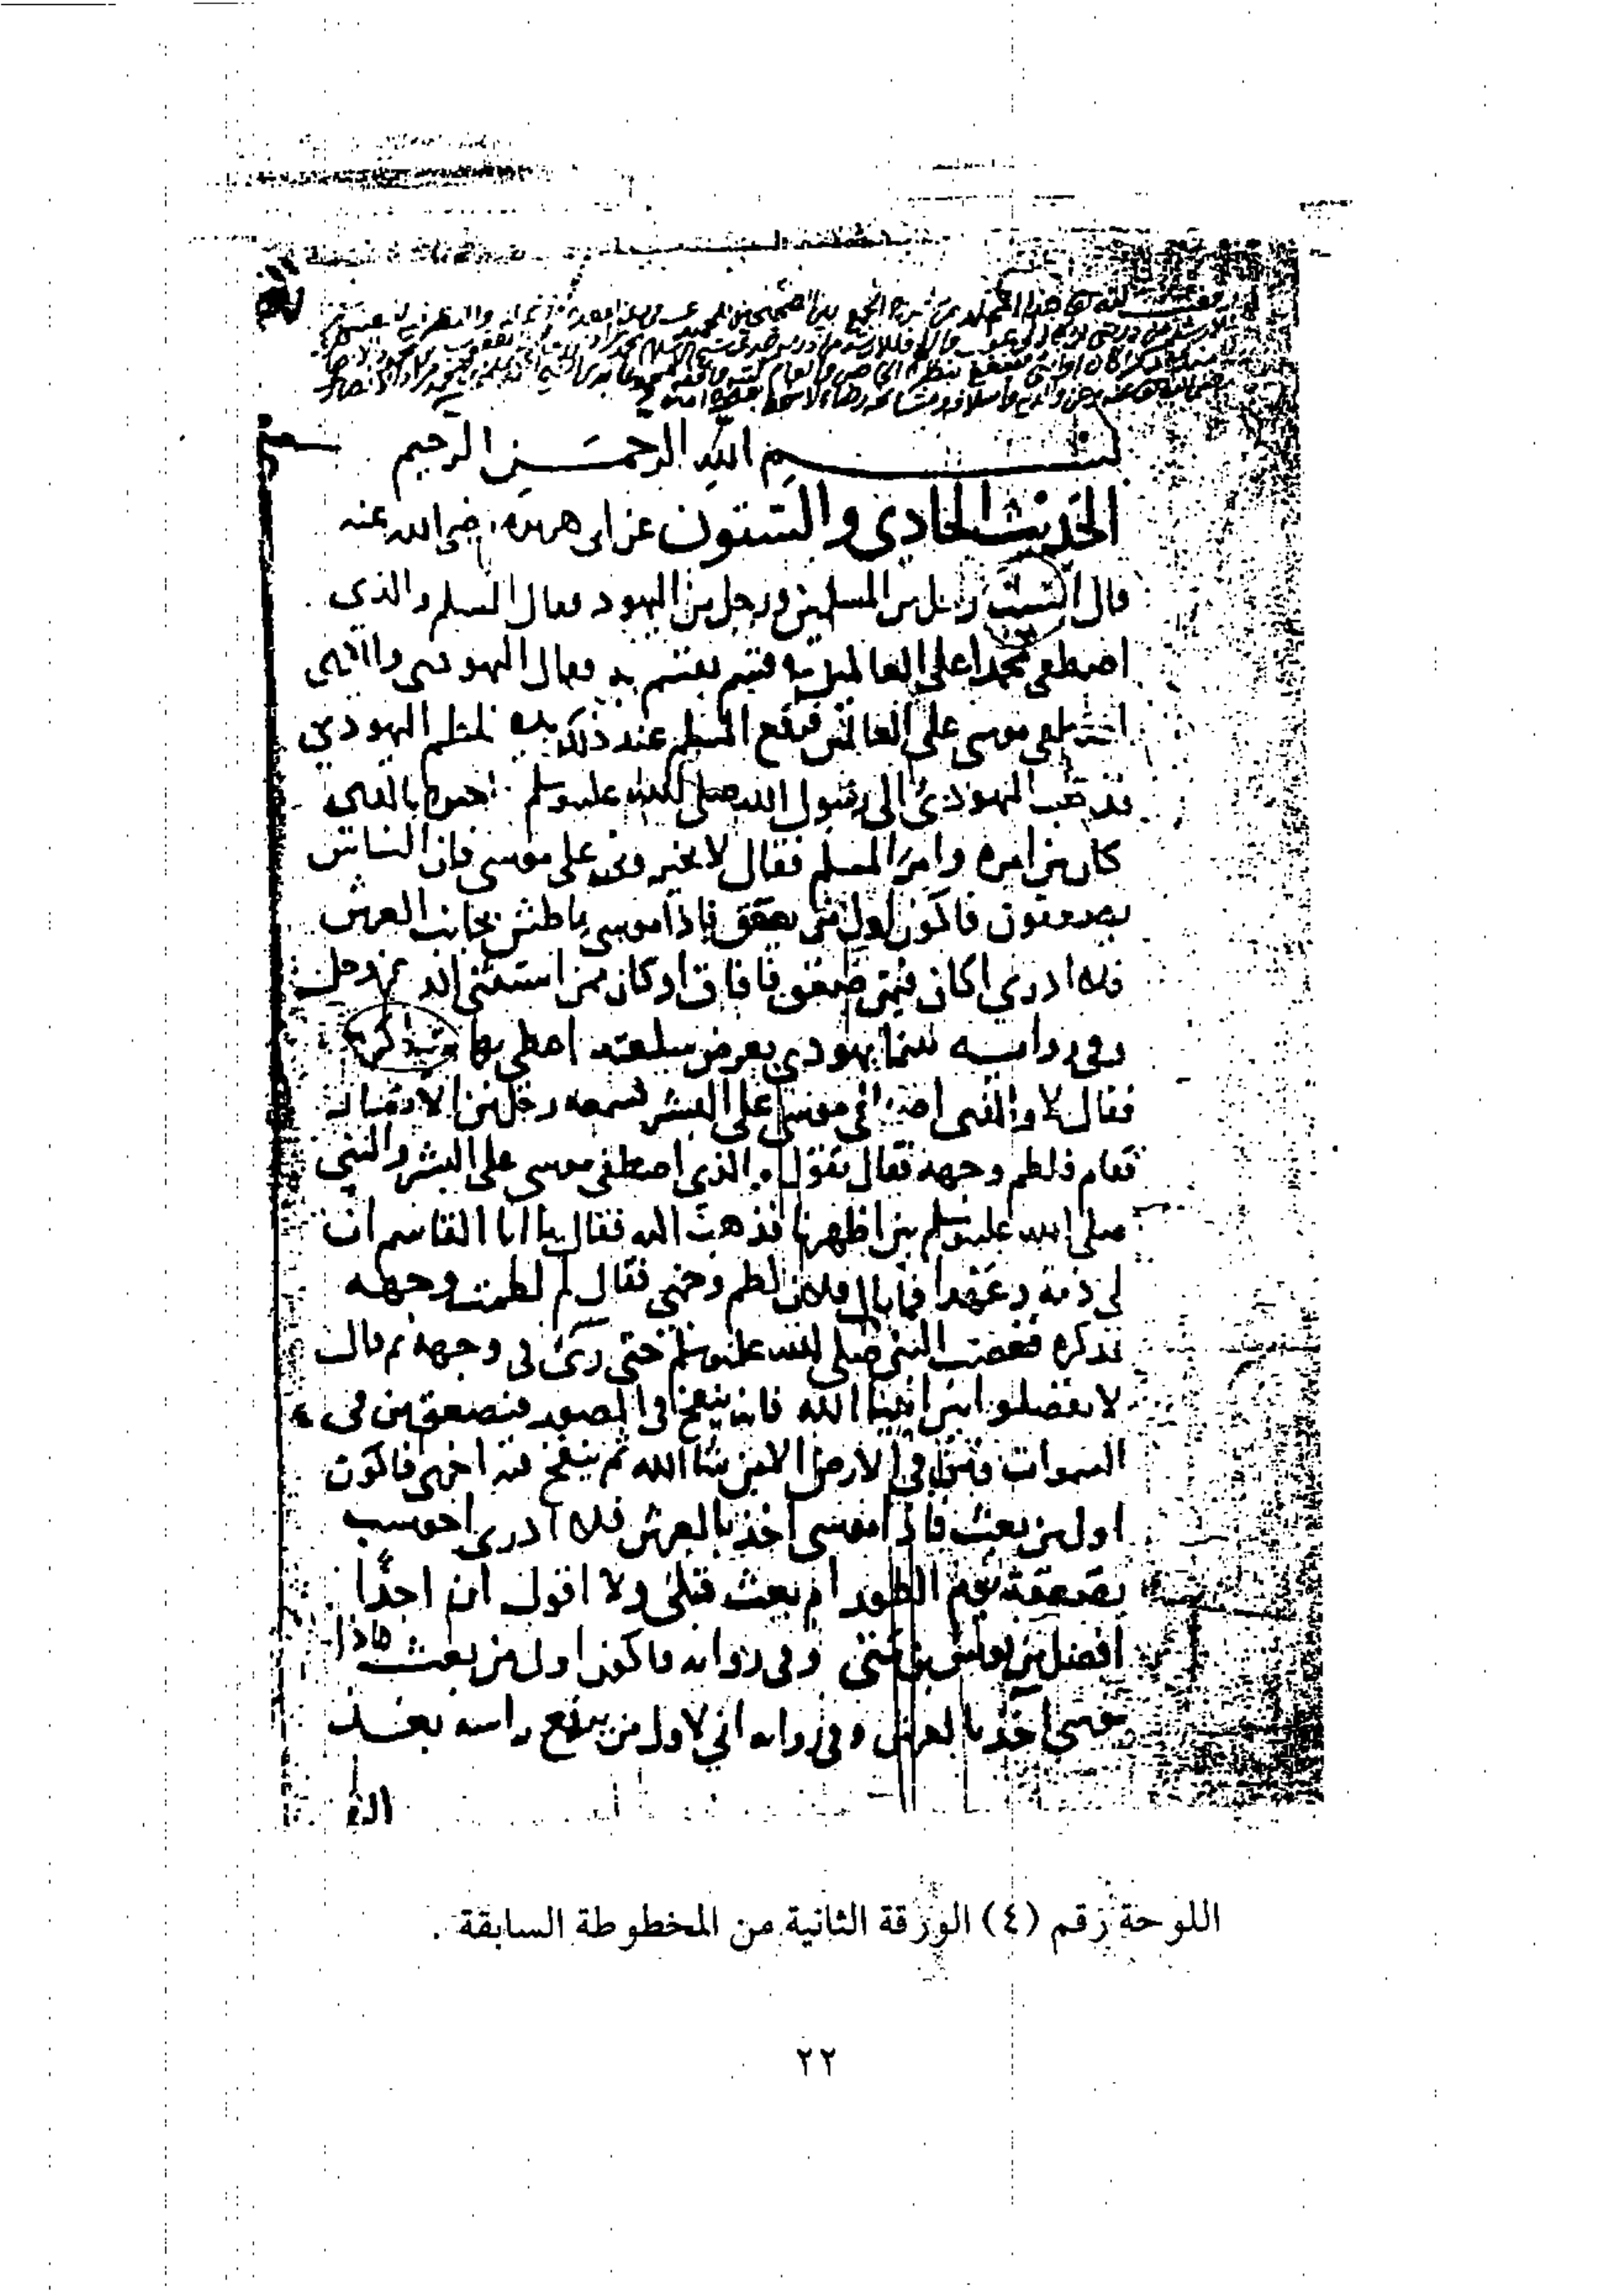 بسم الله الرحمن الرحيم
الحديث الحادي والستون عن ابي هريرة رضي الله عنه
قال استب رجل من المسلمين ورجل من اليهود فقال المسلم والذي
اصطفى محمدا على العالمين في قسم يقسم به فقال اليهودي والذي
اصطفى موسى على العالمين فرفع المسلم عند ذلك يده فلطم اليهودي
فذهب اليهودي الى رسول الله صلى الله عليه وسلم فاخبره بالذي
كان من امره وامر المسلم فقال لا تخيروني على موسى فان الناس
يصعقون فاكون اول من يفيق فاذا موسى باطش بجانب العرش
فلا ادري اكان فيمن صعق فافاق او كان ممن استثنى الله عز وجل
وفي رواية بينما يهودي يعرض سلعته اعطي بها شيا كرهه
فقال لا والذي اصطفى موسى على البشر فسمعه رجل من الانصار
فقام فلطم وجهه فقال تقول والذي اصطفى موسى على البشر والنبي
صلى الله عليه وسلم بين اظهرنا فذهب اليه فقال يا ابا القاسم ان
لي ذمة وعهدا فما بال فلان لطم وجهي فقال لم لطمت وجهه
فذكره فغضب النبي صلى الله عليه وسلم حتى رئي في وجهه ثم قال
لا تفضلوا بين انبيا الله فانه ينفخ في الصور فيصعق من في
السموات ومن في الارض الا من شا الله ثم ينفخ فيه اخرى فاكون
اول من بعث فاذا موسى اخذ بالعرش فلا ادري احوسب
بصعقة يوم الطور ام بعث قبلي ولا اقول ان احدا
افضل من يونس بن متى وفي رواية فاكون اول من بعث فاذا
موسى اخذ بالعرش وفي رواية اني لاول من يرفع راسه بعد
اللوحة رقم (٤) الورقة الثانية من المخطوطة السابقة .
٢٢